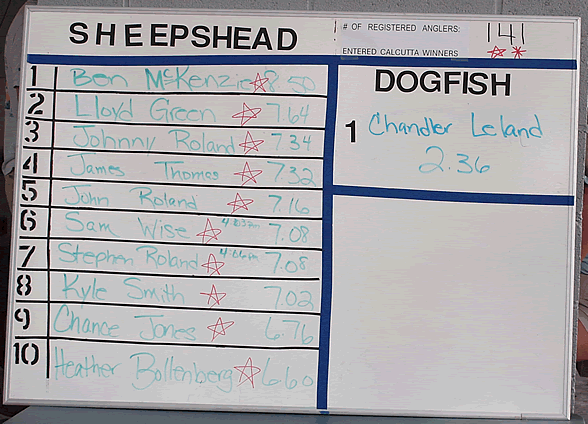 SHEEPSHEAD
# OF REGISTERED ANGLERS: 141
ENTERED CALCUTTA WINNERS
1 Ben McKenzie 8.50
2 Lloyd Green 7.64
3 Johnny Roland 7.34
4 James Thomas 7.32
5 John Roland 7.16
6 Sam Wise 7.08
7 Stephen Roland 7.08
8 Kyle Smith 7.02
9 Chance Jones 6.76
10 Heather Boltenberg 6.60
DOGFISH
1 Chandler Leland
2.36